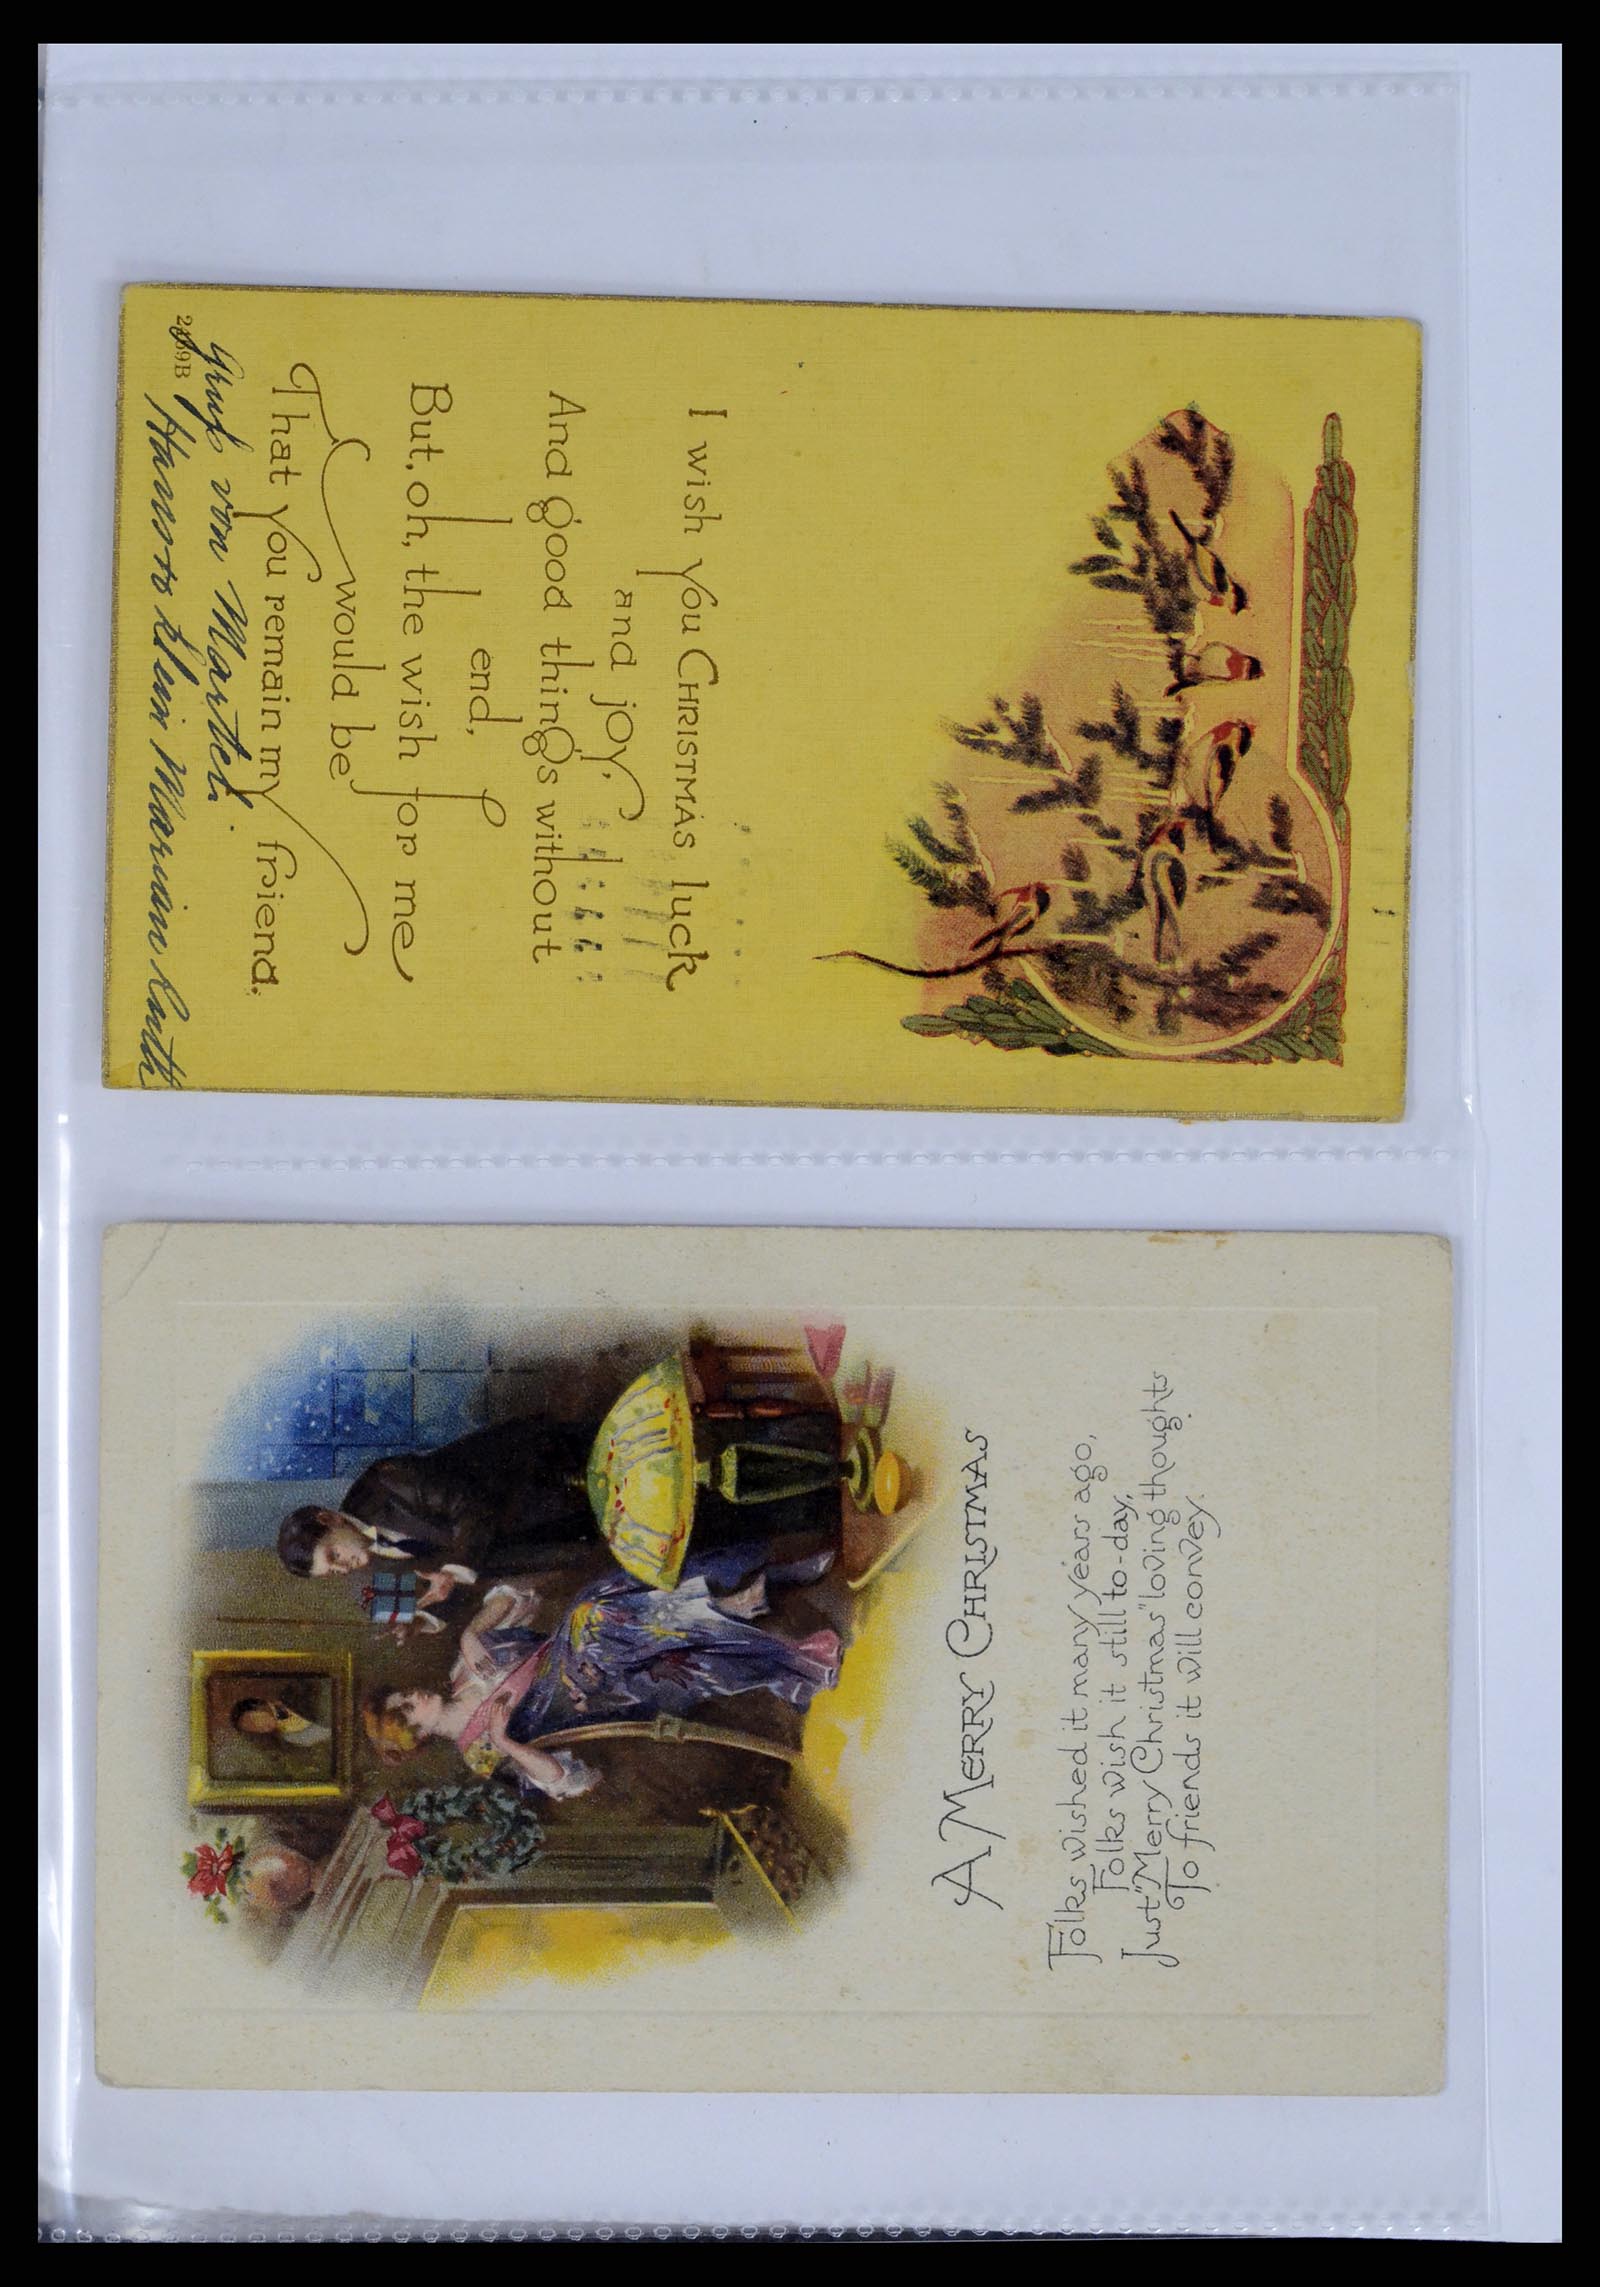 I wish you CHRISTMAS luck
and joy,
And good things without
end,
But, oh, the wish for me
would be
That you remain my friend.
Gruß von Martel.
Hans
A MERRY CHRISTMAS
Folks wished it many years ago,
Folks wish it still to-day,
Just "Merry Christmas" loving thoughts
To friends it will convey.